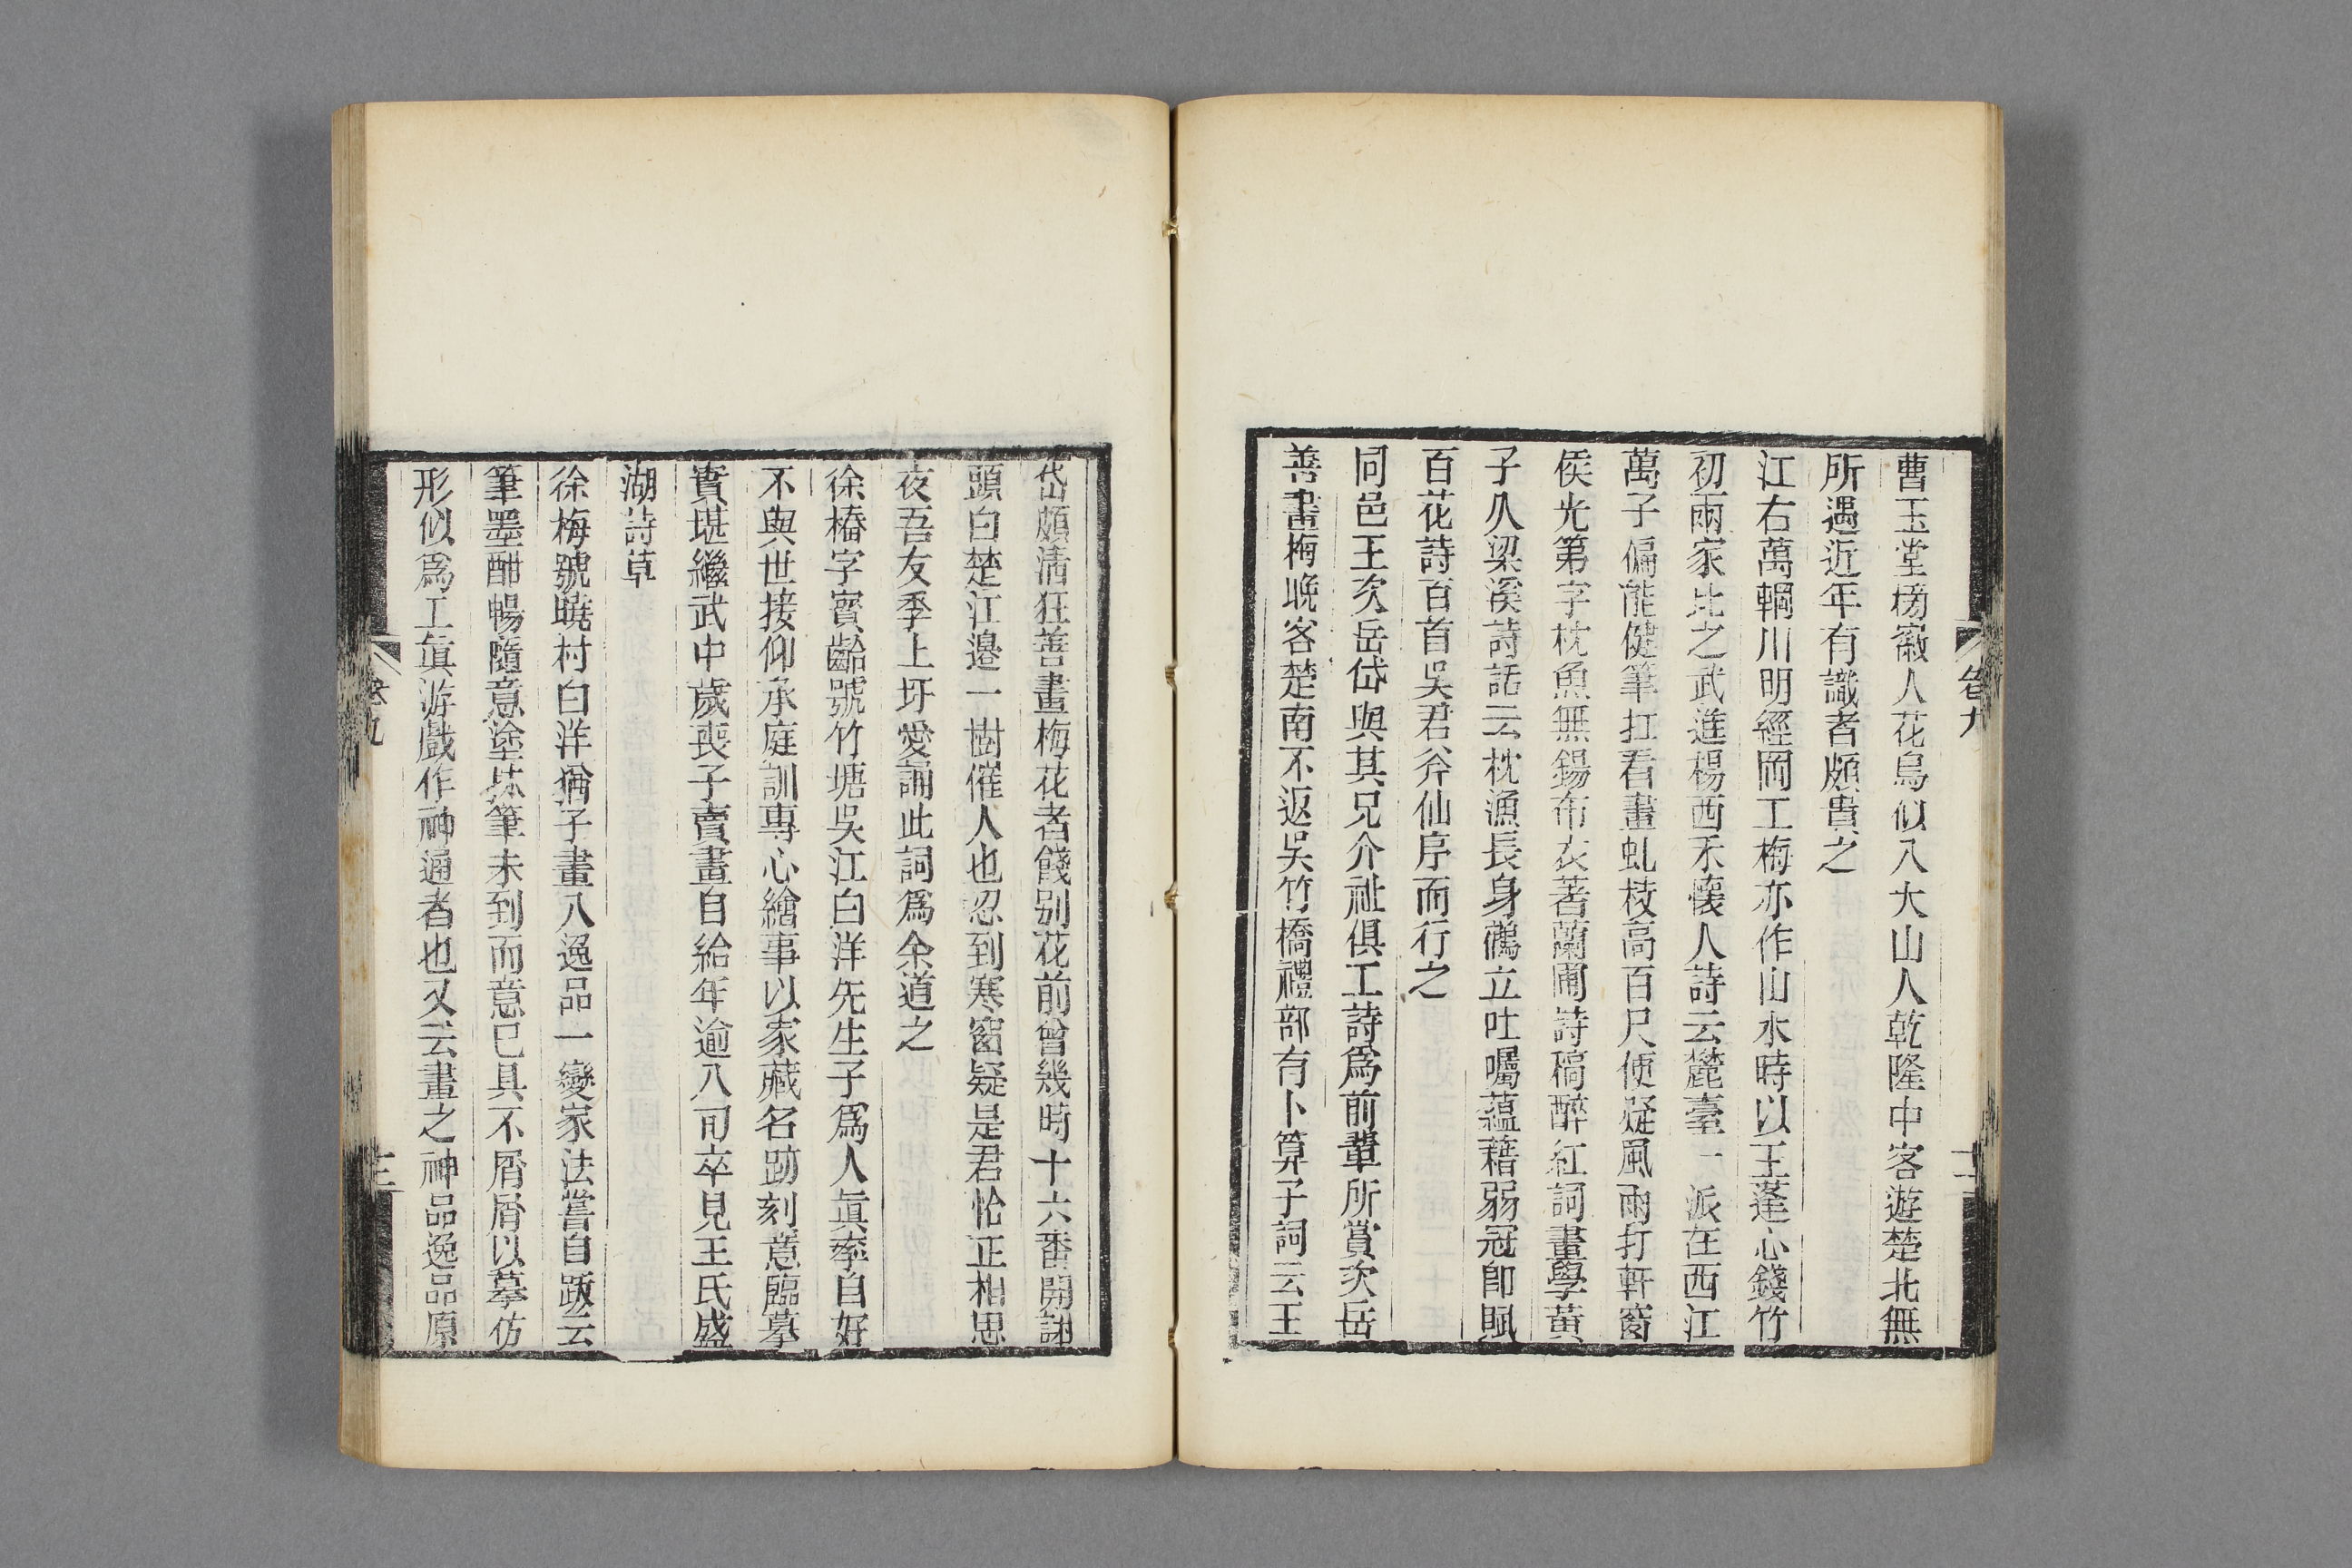 曹玉堂榜徽人花鳥似八大山人乾隆中客遊楚北無
所遇近年有識者頗貴之
江右萬輞川明經岡工梅亦作山水時以王蓬心錢竹
初兩家比之武進楊西禾懷人詩云麓臺一派在西江
萬子偏能健筆扛看畫虬枝高百尺便疑風雨打軒窗
侯光第字枕魚無錫布衣著蘭圃詩稿醉紅詞畫學黃
子久梁溪詩話云枕漁長身鶴立吐囑蘊藉弱冠卽賦
百花詩百首吳君斧仙序而行之
同邑王次岳岱與其兄介祉俱工詩爲前輩所賞次岳
善畫梅晚客楚南不返吳竹橋禮部有卜算子詞云王
卷九
十二
岱頗淸狂善畫梅花者餞别花前曾幾時十六番開謝
頭白楚江邊一樹催人也忍到寒窗疑是君恰正相思
夜吾友季上圩愛誦此詞爲余道之
徐椿字賓齡號竹塘吳江白洋先生子爲人眞率自好
不與世接仰承庭訓專心繪事以家藏名跡刻意臨摹
實堪繼武中歲喪子賣畫自給年逾八旬卒見王氏盛
湖詩草
徐梅號曉村白洋猶子畫入逸品一變家法嘗自跋云
筆墨酣暢隨意塗抹筆未到而意已具不屑屑以摹仿
形似爲工眞游戲作神通者也又云畫之神品逸品原
卷九
十三